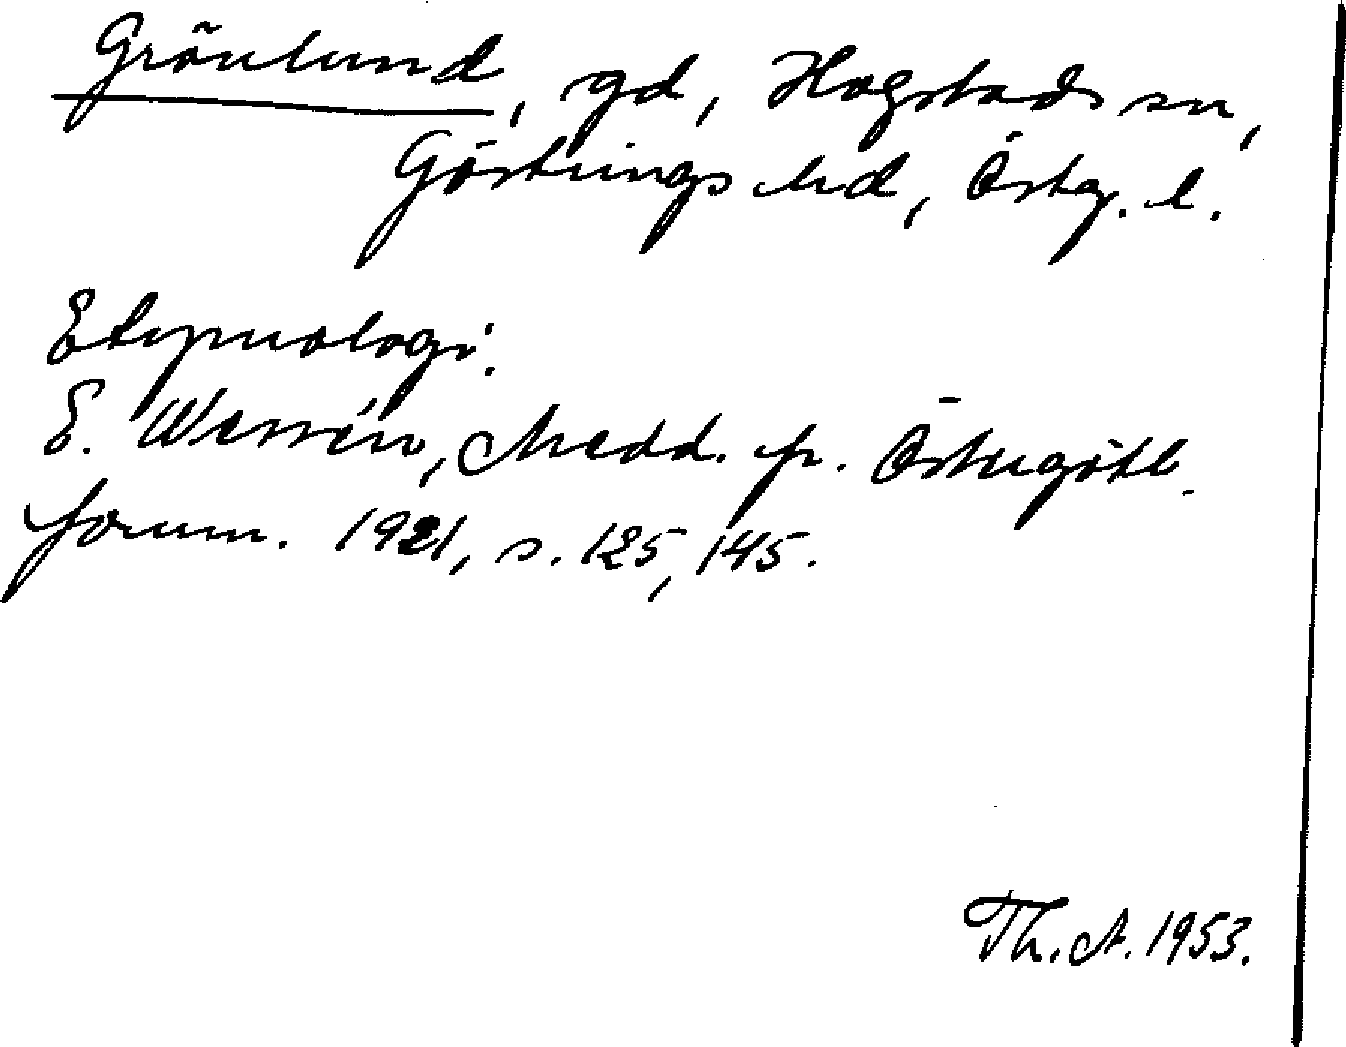 Grönlund, gd, Hogstads sn,
Göstrings hd, Östg. l.
Etymologi.
E. Wessén, Medd. fr. Östergötl.
fornm. 1921, s. 125, 145.
Th. A. 1953.